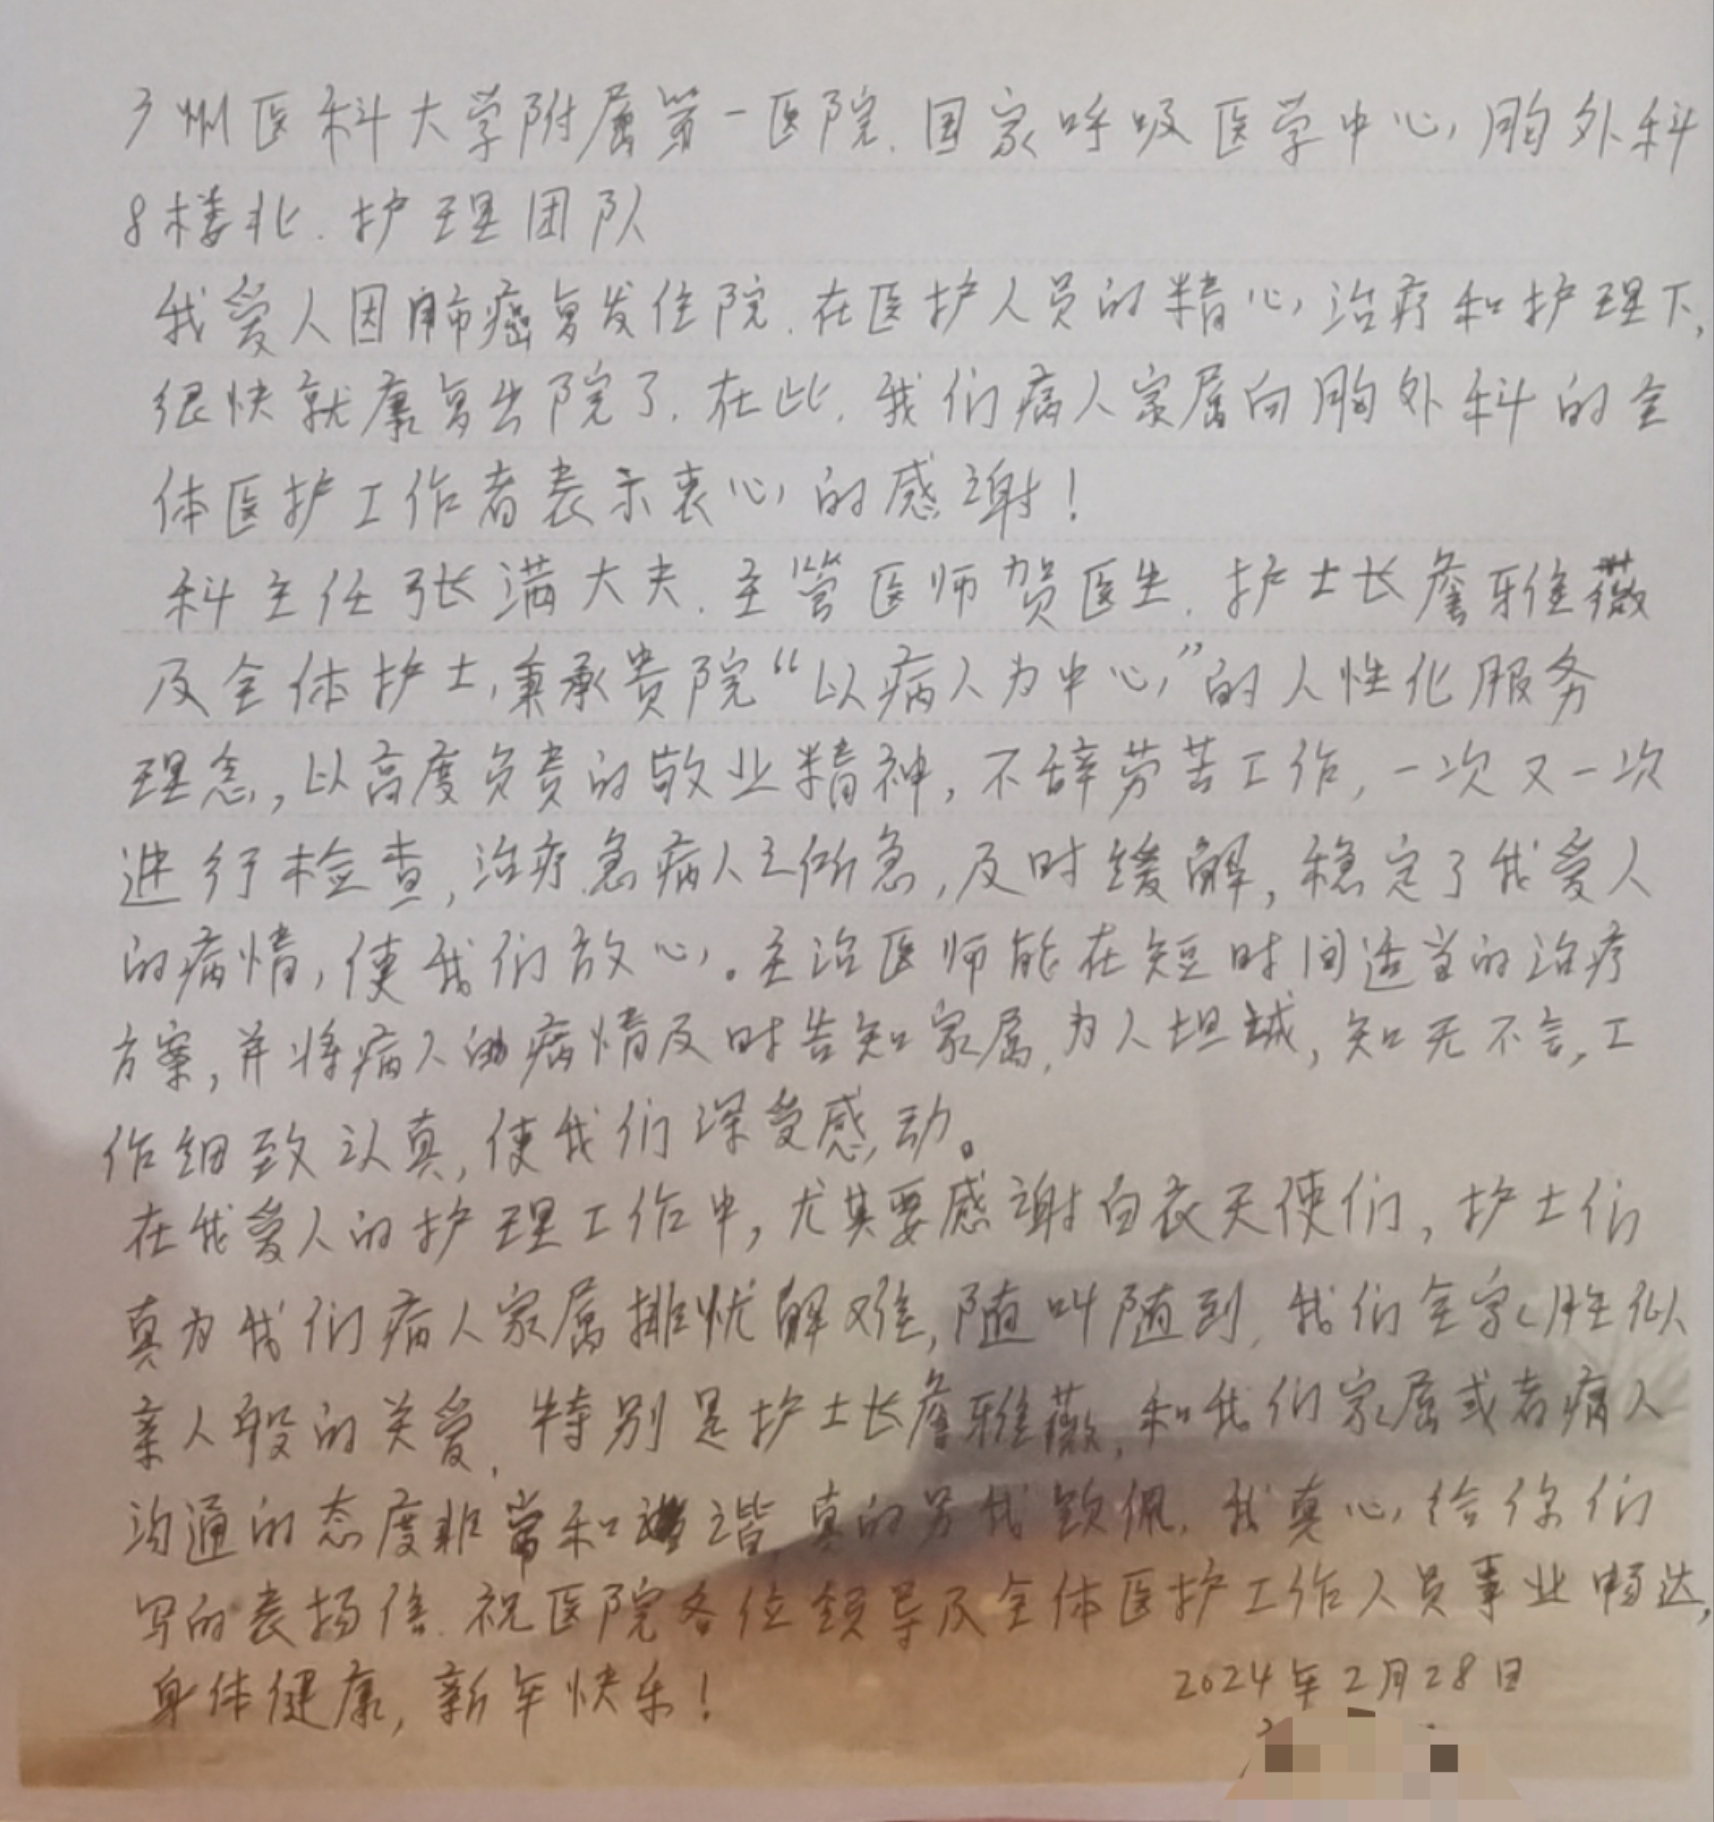 广州医科大学附属第一医院.国家呼吸医学中心胸外科
8楼北.护理团队
我爱人因肺癌复发住院.在医护人员的精心治疗和护理下,
很快就康复出院了.在此.我们病人家属向胸外科的全
体医护工作者表示衷心的感谢!
科主任张满大夫.主管医师贺医生.护士长詹雅薇
及全体护士,秉承贵院“以病人为中心”的人性化服务
理念,以高度负责的敬业精神,不辞劳苦工作,一次又一次
进行检查,治疗.急病人之所急,及时缓解,稳定了我爱人
的病情,使我们放心。主治医师能在短时间适当的治疗
方案,并将病人的病情及时告知家属,为人坦诚,知无不言,工
作细致认真,使我们深受感动。
在我爱人的护理工作中,尤其要感谢白衣天使们,护士们
真为我们病人家属排忧解难,随叫随到,我们全家心胜似
亲人般的关爱,特别是护士长詹雅薇,和我们家属或者病人
沟通的态度非常和谐,真的另我钦佩,我真心给你们
写的表扬信.祝医院各位领导及全体医护工作人员事业畅达,
身体健康,新年快乐!
2024年2月28日